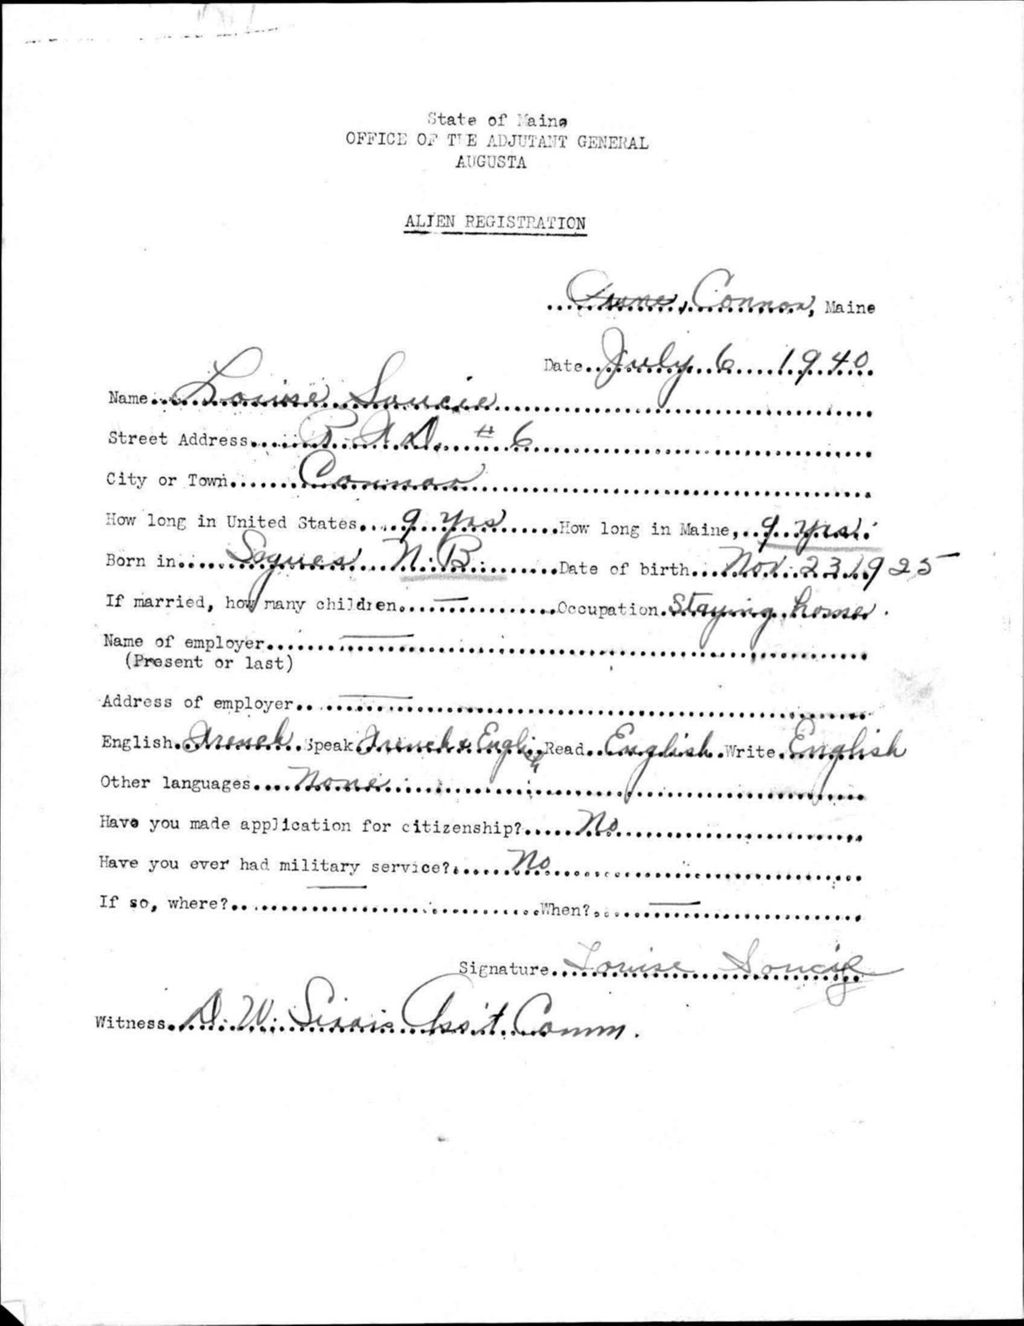 State of Maine
OFFICE OF THE ADJUTANT GENERAL
AUGUSTA
ALIEN REGISTRATION
Connor, Maine
Date July 6 1940
Name Louise Soucie
Street Address R.F.D. #6
City or Town Connor
How long in United States 9 yrs How long in Maine 9 yrs.
Born in N.B. Date of birth Nov. 23 1925
If married, how many children — Occupation Staying home.
Name of employer —
(Present or last)
Address of employer —
English French Speak French & English Read English Write English
Other languages None
Have you made application for citizenship? No
Have you ever had military service? No
If so, where? — When? —
Signature Louise Soucie
Witness D. W. Sirois Ass't. Comm.